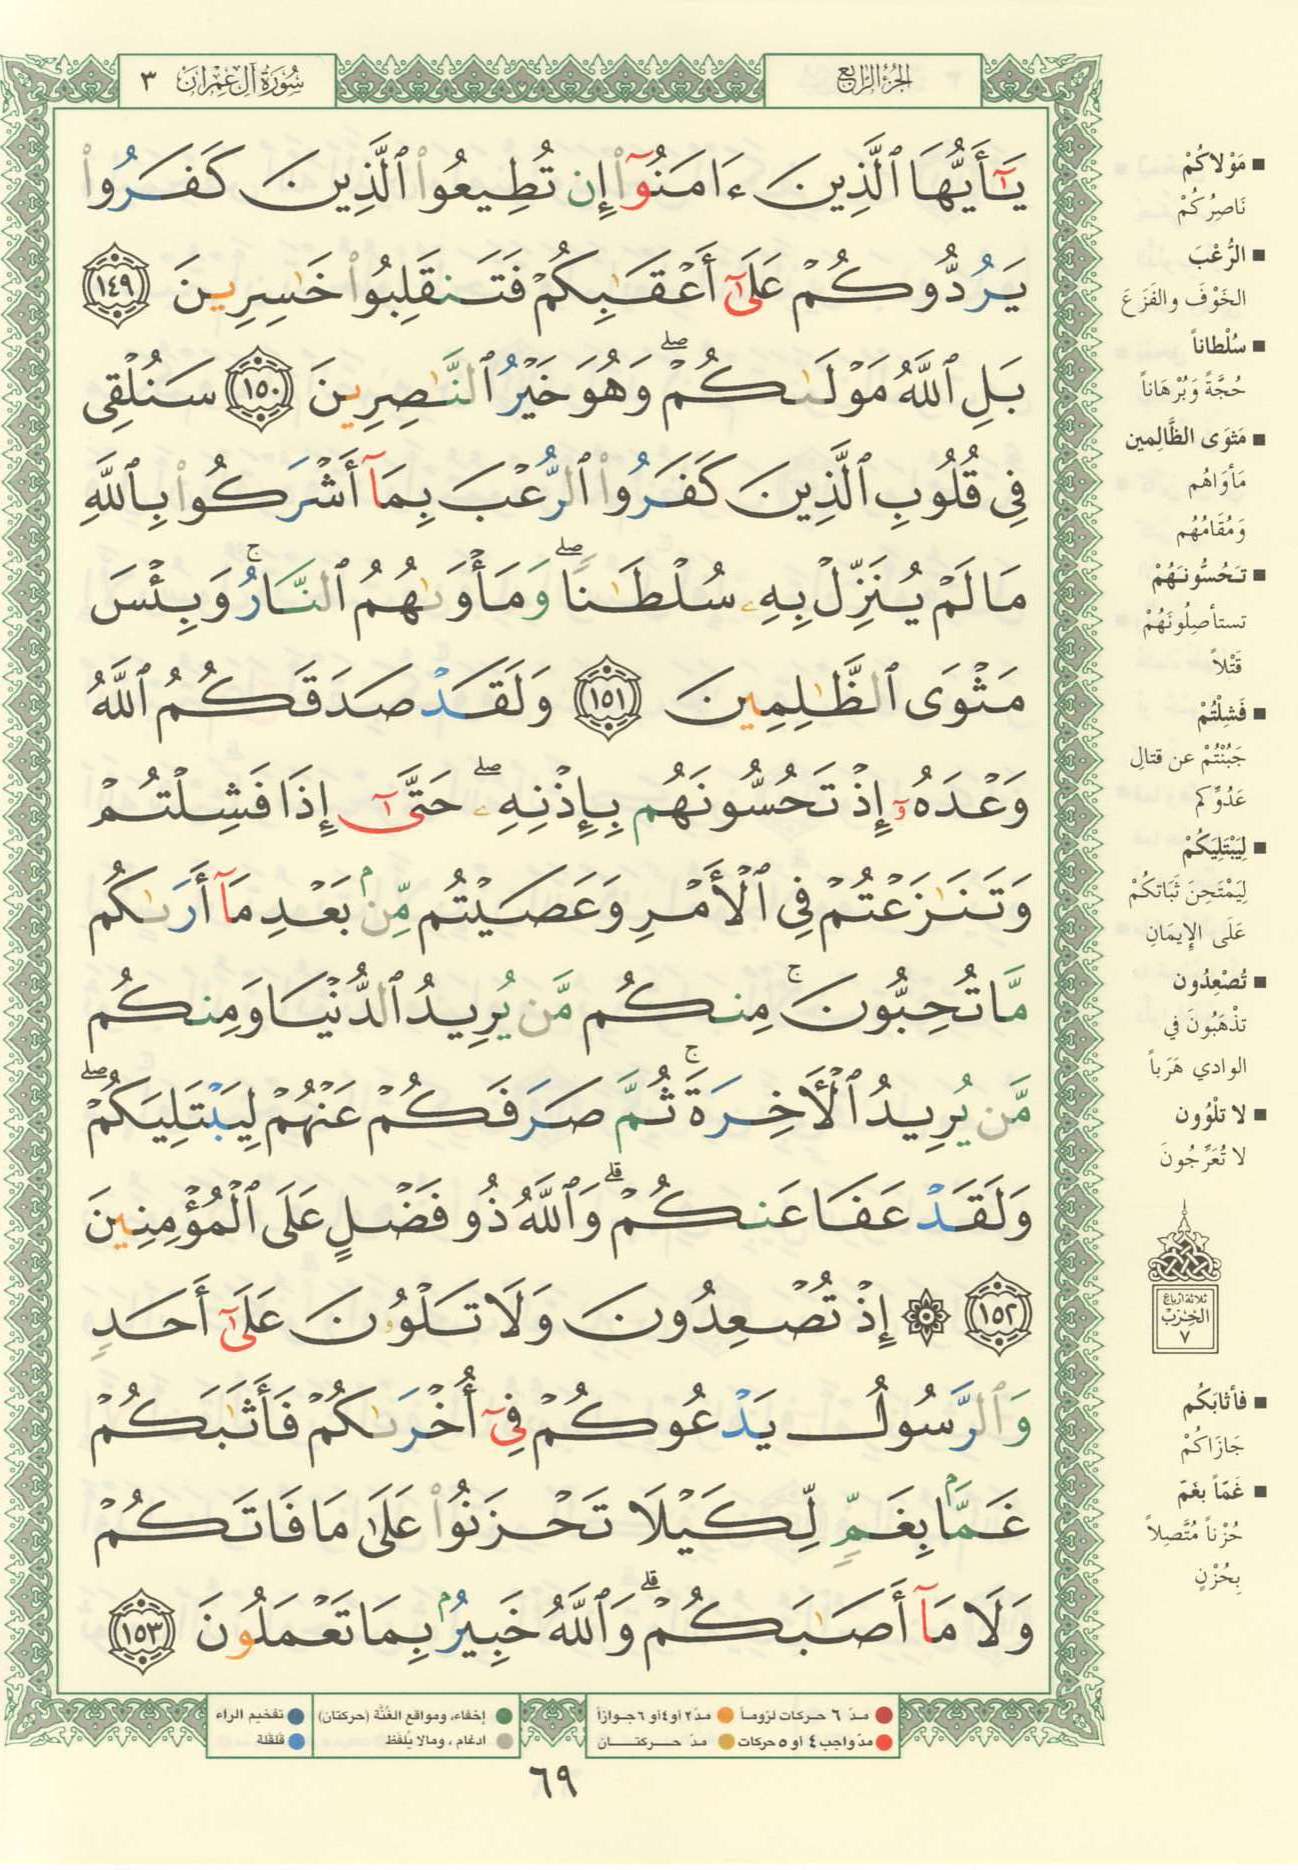 الجزء الرابع
سورة آل عمران ٣
يَٰٓأَيُّهَا ٱلَّذِينَ ءَامَنُوٓا۟ إِن تُطِيعُوا۟ ٱلَّذِينَ كَفَرُوا۟
يَرُدُّوكُمْ عَلَىٰٓ أَعْقَٰبِكُمْ فَتَنقَلِبُوا۟ خَٰسِرِينَ ١٤٩
بَلِ ٱللَّهُ مَوْلَىٰكُمْ ۖ وَهُوَ خَيْرُ ٱلنَّٰصِرِينَ ١٥٠ سَنُلْقِى
فِى قُلُوبِ ٱلَّذِينَ كَفَرُوا۟ ٱلرُّعْبَ بِمَآ أَشْرَكُوا۟ بِٱللَّهِ
مَا لَمْ يُنَزِّلْ بِهِۦ سُلْطَٰنًا ۖ وَمَأْوَىٰهُمُ ٱلنَّارُ ۚ وَبِئْسَ
مَثْوَى ٱلظَّٰلِمِينَ ١٥١ وَلَقَدْ صَدَقَكُمُ ٱللَّهُ
وَعْدَهُۥٓ إِذْ تَحُسُّونَهُم بِإِذْنِهِۦ ۖ حَتَّىٰٓ إِذَا فَشِلْتُمْ
وَتَنَٰزَعْتُمْ فِى ٱلْأَمْرِ وَعَصَيْتُم مِّنۢ بَعْدِ مَآ أَرَىٰكُم
مَّا تُحِبُّونَ ۚ مِنكُم مَّن يُرِيدُ ٱلدُّنْيَا وَمِنكُم
مَّن يُرِيدُ ٱلْءَاخِرَةَ ۚ ثُمَّ صَرَفَكُمْ عَنْهُمْ لِيَبْتَلِيَكُمْ ۖ
وَلَقَدْ عَفَا عَنكُمْ ۗ وَٱللَّهُ ذُو فَضْلٍ عَلَى ٱلْمُؤْمِنِينَ
١٥٢ ۞ إِذْ تُصْعِدُونَ وَلَا تَلْوُۥنَ عَلَىٰٓ أَحَدٍ
وَٱلرَّسُولُ يَدْعُوكُمْ فِىٓ أُخْرَىٰكُمْ فَأَثَٰبَكُمْ
غَمًّۢا بِغَمٍّ لِّكَيْلَا تَحْزَنُوا۟ عَلَىٰ مَا فَاتَكُمْ
وَلَا مَآ أَصَٰبَكُمْ ۗ وَٱللَّهُ خَبِيرٌۢ بِمَا تَعْمَلُونَ ١٥٣
■ مَوْلاكُمْ
نَاصِرُكُمْ
■ الرُّعْبَ
الخَوْفَ والفَزَعَ
■ سُلْطاناً
حُجَّةً وَبُرْهَاناً
■ مَثوَى الظَّالِمين
مَأوَاهُم
وَمُقَامُهُم
■ تَحُسُّونَهُمْ
تستأصِلُونَهُمْ
قَتْلاً
■ فَشِلْتُمْ
جَبُنْتُمْ عن قتالِ
عَدُوِّكم
■ لِيَبْتَلِيَكُمْ
لِيَمْتَحِنَ ثَبَاتكُمْ
عَلَى الإِيمَانِ
■ تُصْعِدُون
تذْهَبُونَ في
الوادي هَرَباً
■ لا تَلْوُون
لا تُعَرِّجُونَ
ثلاثة أرباع
الحزب
٧
■ فأثابَكُم
جَازَاكُمْ
■ غَمّاً بغَمّ
حُزْناً مُتَّصِلاً
بِحُزْنٍ
مدّ ٦ حركات لزوماً مدّ ٢ أو ٤ أو ٦ جوازاً إخفاء، ومواقع الغُنَّة (حركتان) تفخيم الراء
مدّ واجب ٤ أو ٥ حركات مدّ حركتان ادغام، وما لا يُلفَظ قلقلة
٦٩